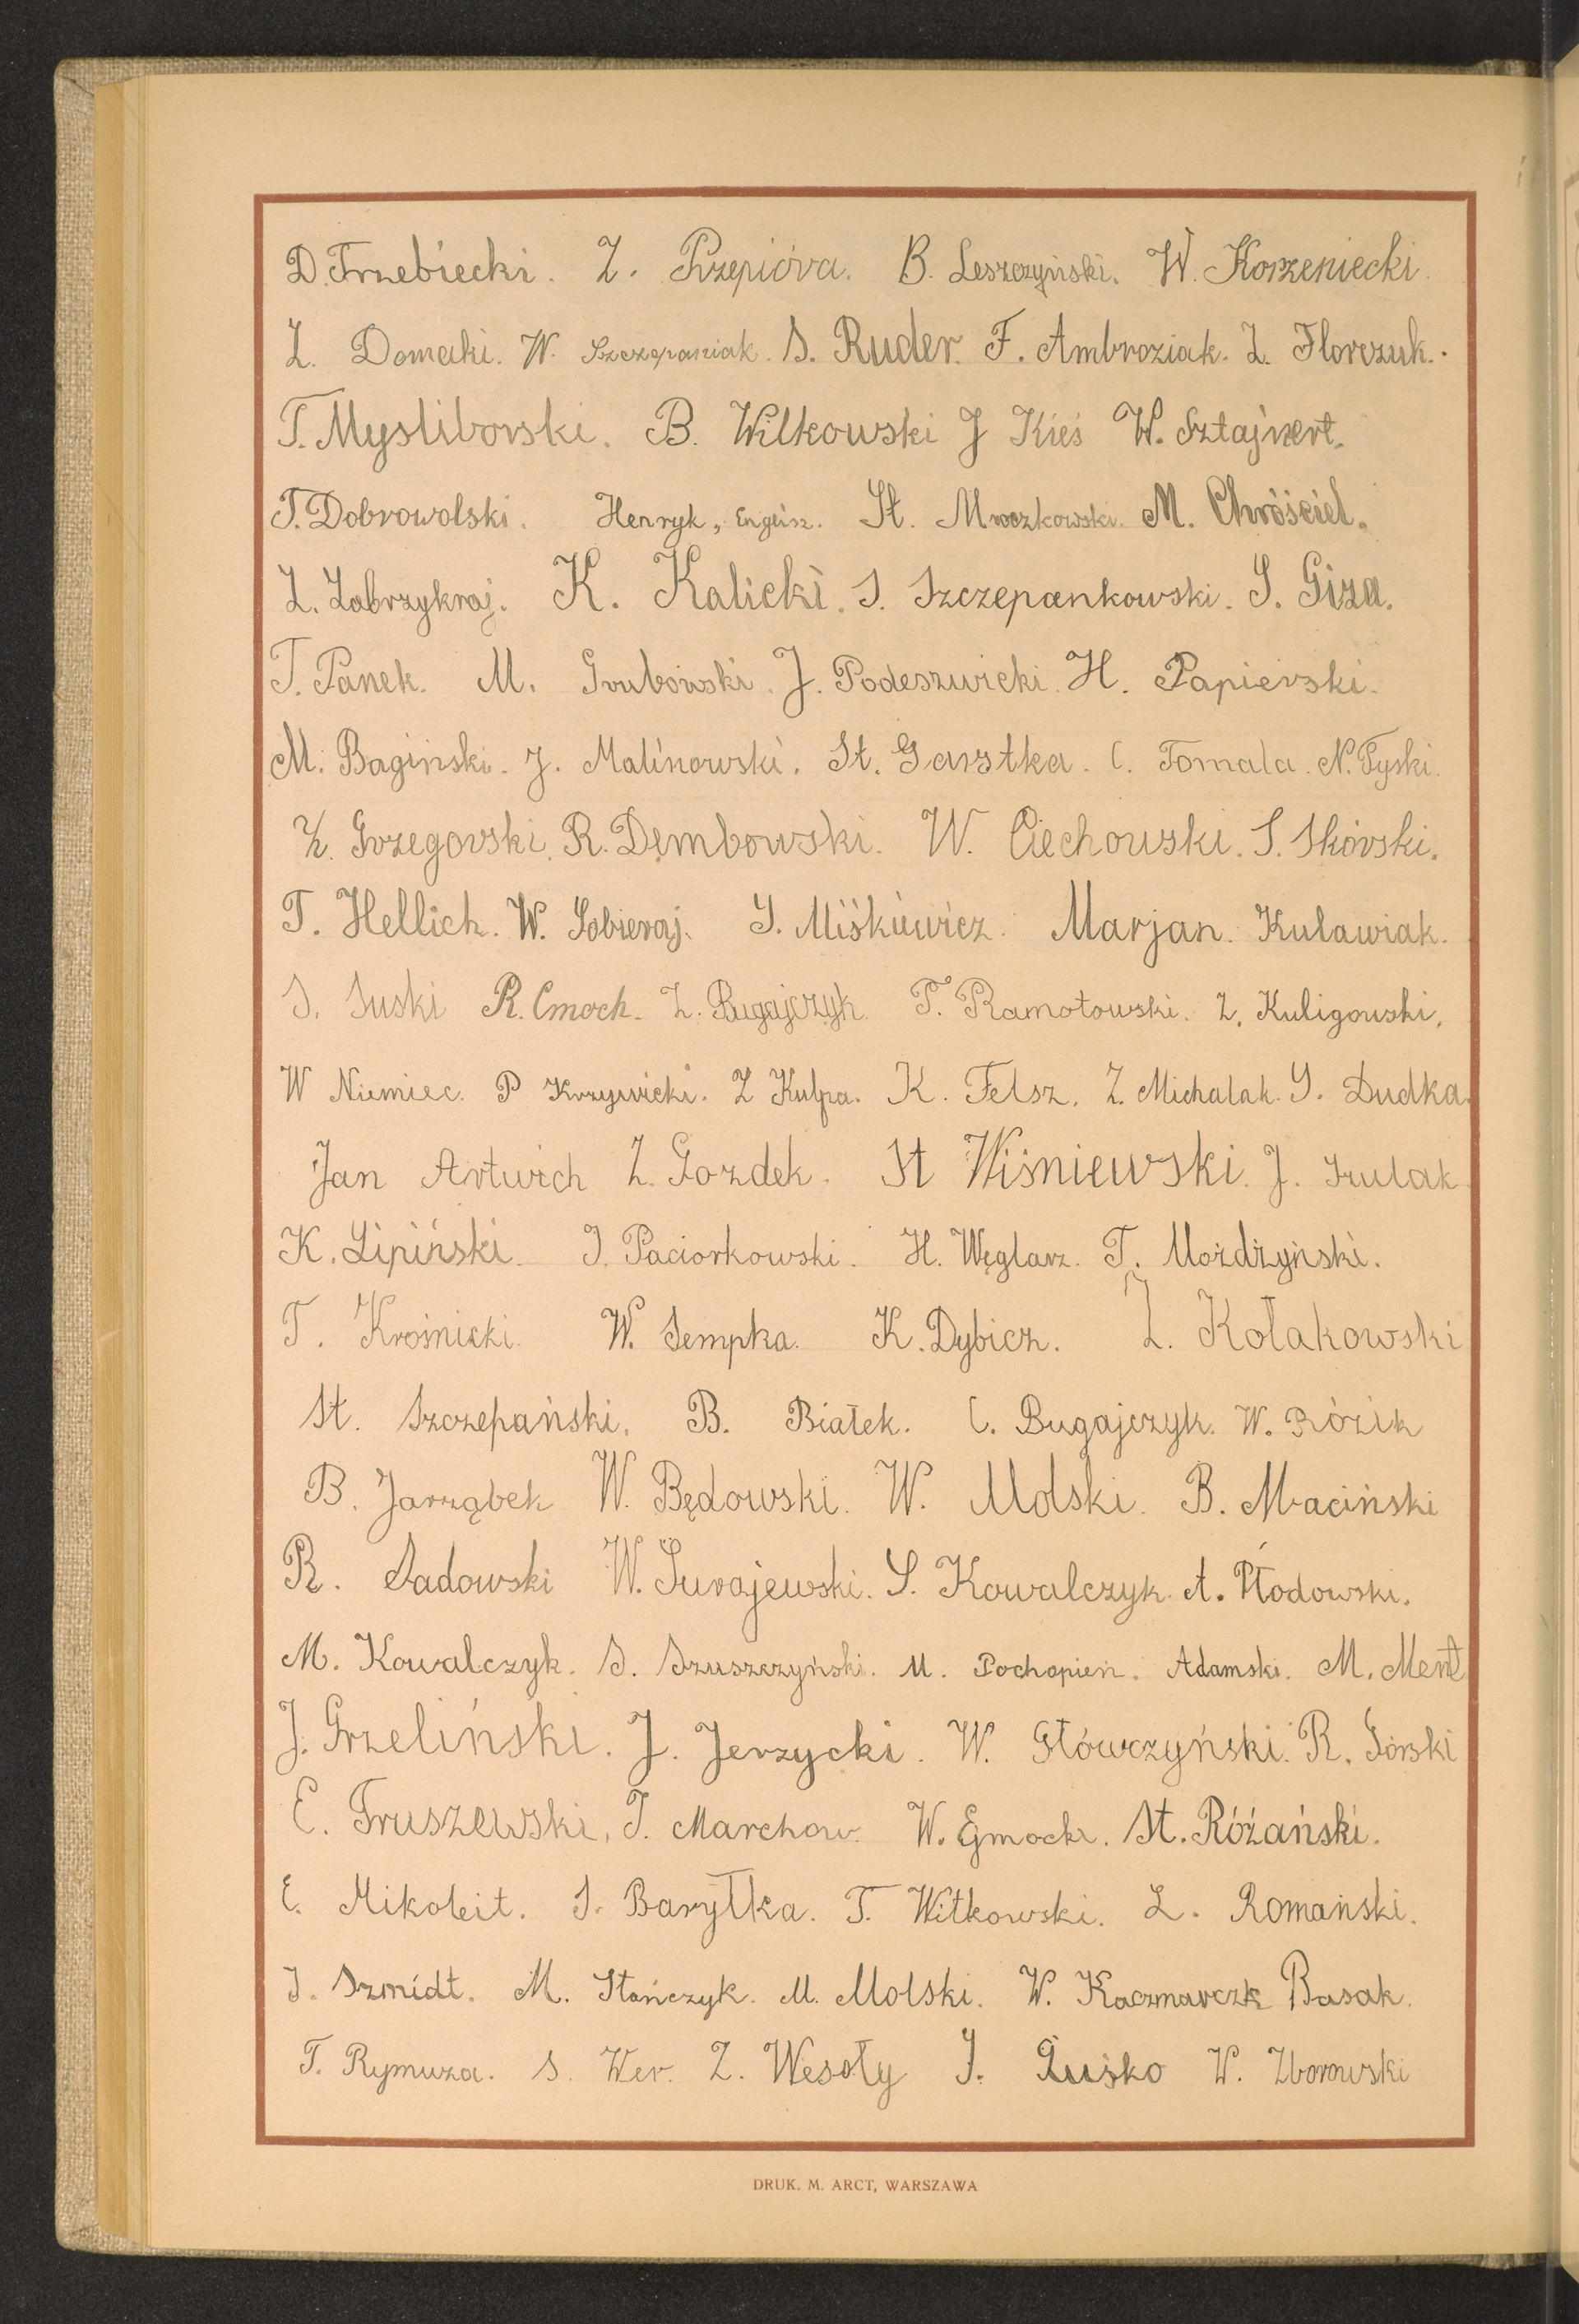 D. Trzebiecki. Z. Przepióra. B. Leszczyński. W. Korzeniecki.
Z. Domecki. W. Szczepaniak. S. Ruder. F. Ambroziak. Z. Florczuk.
T. Mysliborski. B. Wilkowski J Kieś W. Sztajnert.
T. Dobrowolski. Henryk, Englin. St. Mroczkowski. M. Chróściel.
Z. Zabrzykraj. K. Kalicki. S. Szczepankowski. S. Giza.
T. Panek. M. Grubowski. J. Podeszwicki. H. Papierski.
M. Bagiński. J. Malinowski. St. Garstka. C. Tomala. N. Tyski.
Z. Grzegorski. R. Dembowski. W. Ciechowski. S. Skórski.
T. Hellich. W. Sobieraj. S. Miśkiewicz. Marjan. Kulawiak.
S. Suski R. Cmoch. Z. Bugajczyk. T. Ramotowski. Z. Kuligowski.
W Niemiec. P Krzywicki. Z Kulpa. K. Felsz. Z. Michalak. S. Dudka.
Jan Artwich Z. Gozdek. St Wiśniewski. J. Szulak
K. Lipiński. J. Paciorkowski. H. Węglarz. T. Możdżyński.
T. Krośnicki. W. Sempka. K. Dybicz. Z. Kołakowski
St. Szczepański. B. Białek. C. Bugajczyk. W. Rózik
B. Jarząbek W. Będowski. W. Molski. B. Maciński
R. Sadowski W. Surajewski. S. Kowalczyk. A. Płodowski.
M. Kowalczyk. S. Szuszczyński. M. Pochopień. Adamski. M. Ment
J. Grzeliński. J. Jerzycki. W. Główczyński. R. Górski
E. Truszewski, J. Marchow. W. Gmoch. St. Różański.
E. Mikoleit. S. Baryłka. T. Witkowski. L. Romański.
J. Szmidt. M. Stańczyk. M. Molski. W. Kaczmarczk Basak.
T. Rymuza. S. Wer. Z. Wesoły J. Puśko W. Zborowski
DRUK. M. ARCT, WARSZAWA